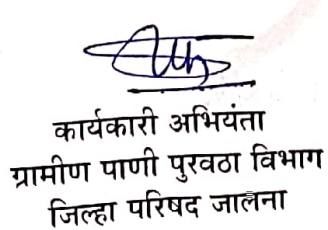 कार्यकारी अभियंता
ग्रामीण पाणी पुरवठा विभाग
जिल्हा परिषद जालना